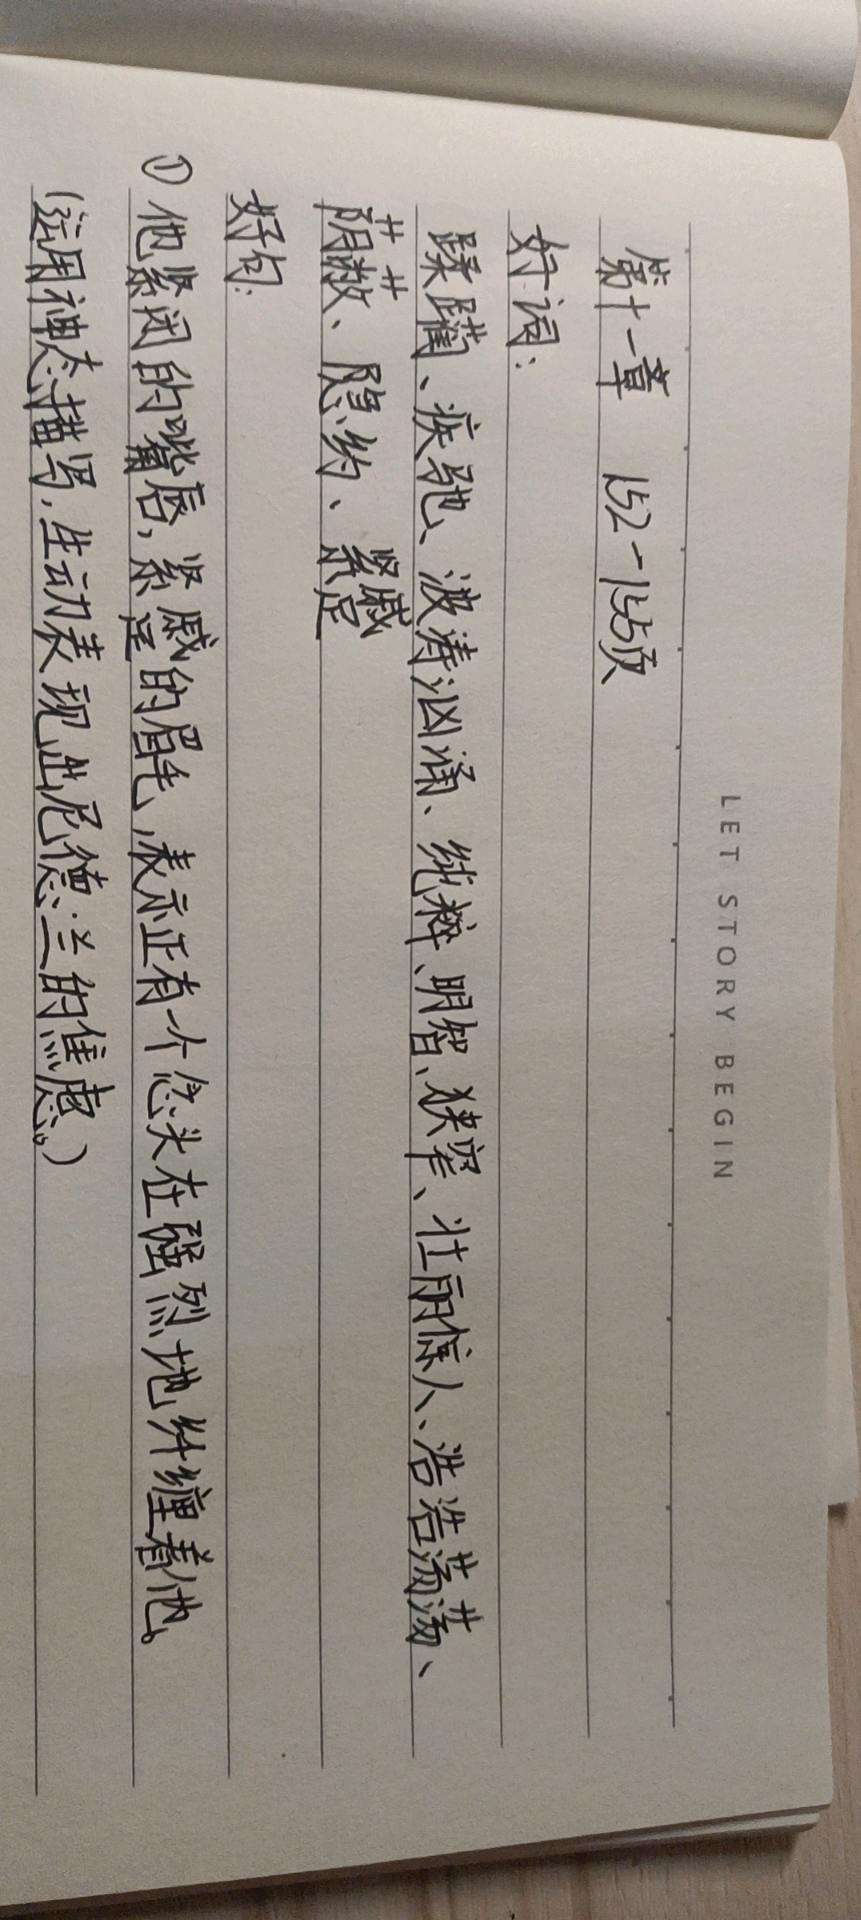 LET STORY BEGIN
第十一章 152-155页
好词:
蹂躏、疾驰、波涛汹涌、纯粹、明智、狭窄、壮丽惊人、浩浩荡荡、
荫蔽、隐约、紧蹙
好句:
① 他紧闭的嘴唇,紧蹙的眉毛,表示正有个念头在强烈地纤缠着他。
(运用神态描写,生动表现出尼德·兰的焦虑。)